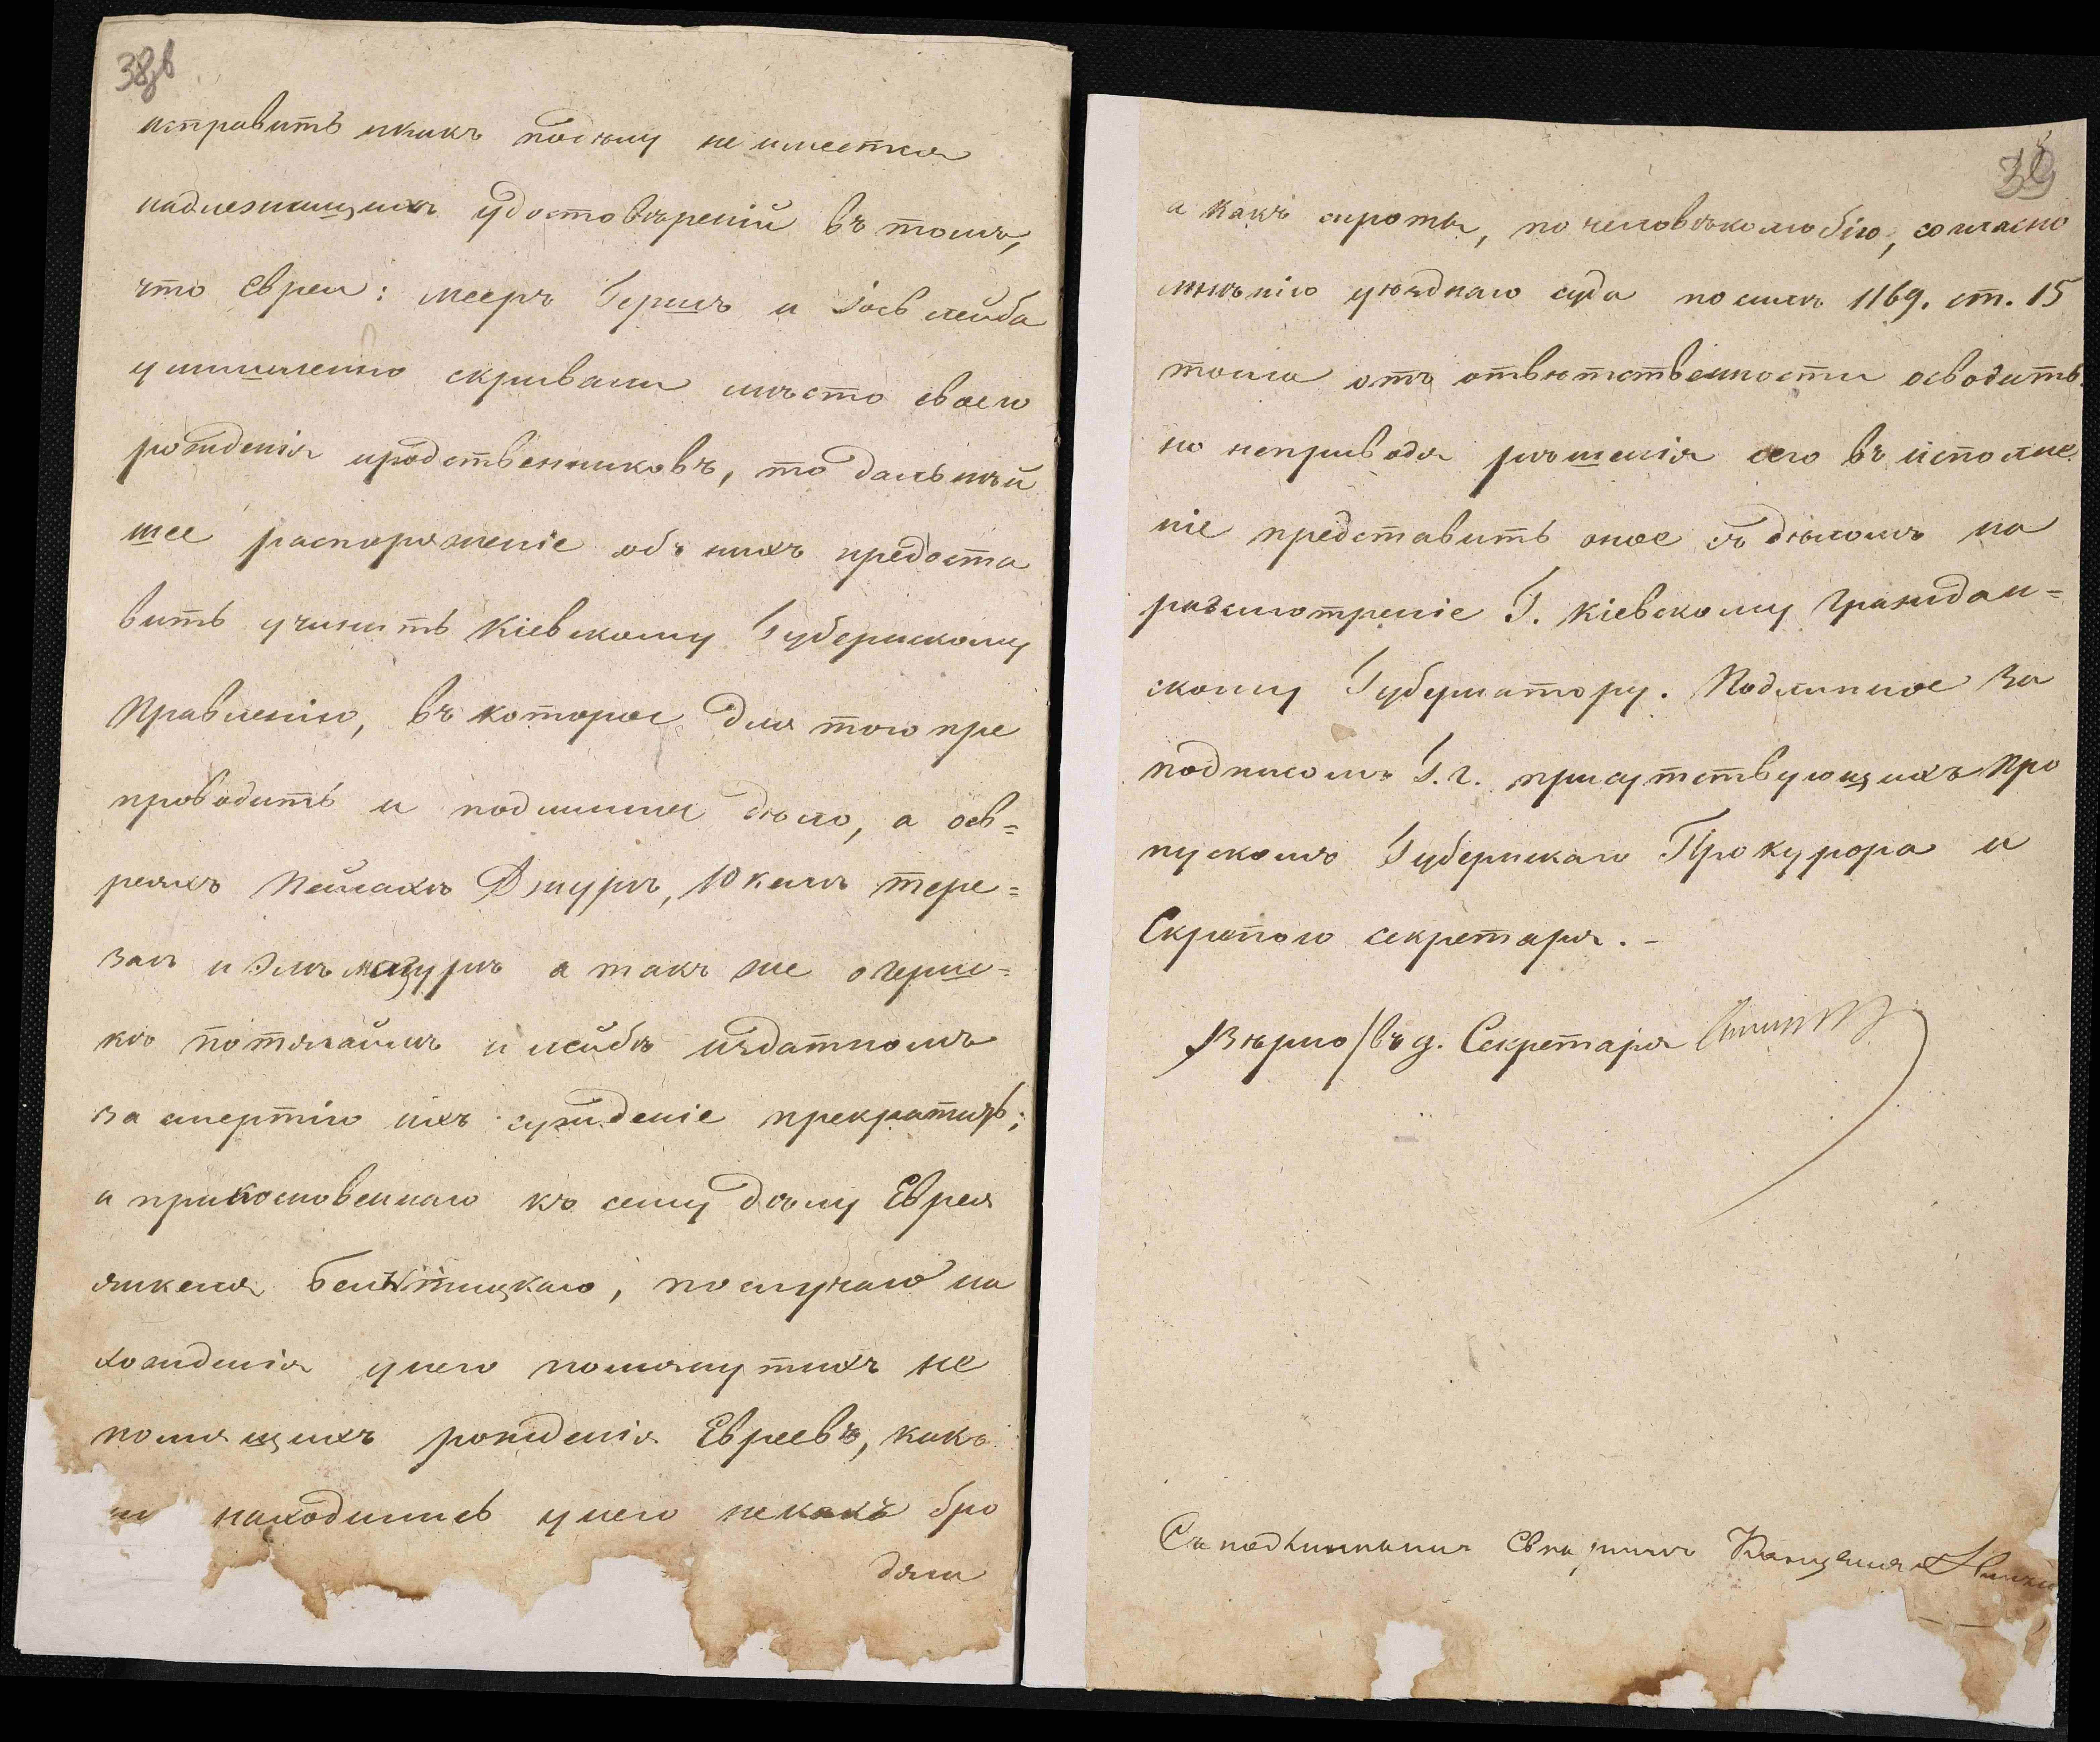 38об
исправить икакъ поделу не имеется
надлежащихъ удостоверений въ томъ,
что Евреи: Мееръ Гершъ и Іось лейба
умышленно скрывали мѣсто своего
рожденія иродственниковъ, то дальнѣй
шее распоряженіе объ нихъ предоста
вить учинить Кіевскому Губернскому
Правленію, въ которое для того пре
проводить и подлинное дѣло, а оев=
реяхъ Пейсахѣ Джурѣ, Юкелѣ тере=
зал и Элѣ мазурѣ а такъ же огерш=
кѣ и лейбѣ
за смертію ихъ сужденіе прекратить;
а прикосновеннаго къ сему дѣлу Еврея
янкеля, послучаю на
хожденія унего помянутыхъ не
помнящихъ рожденія Евреевъ, какъ
находились унего некакъ бро
дяги
39
а какъ сироты, по человѣколюбію, согласно
мнѣнію уѣзднаго суда посилѣ 1169. ст. 15
тома отъ отвѣтственности осводить
но неприводя рѣшенія сего въ исполне
ніе представить оное съ дѣломъ на
разсмотреніе Г. Кіевскому Граждан=
скому Губернатору. Подлинное за
подписомъ Г.г. присутствующихъ Про
пускомъ Губернскаго Прокурора и
Скрѣпою секретаря. -
Вѣрно/въ д. Секретаря
Съ подлиннымъ